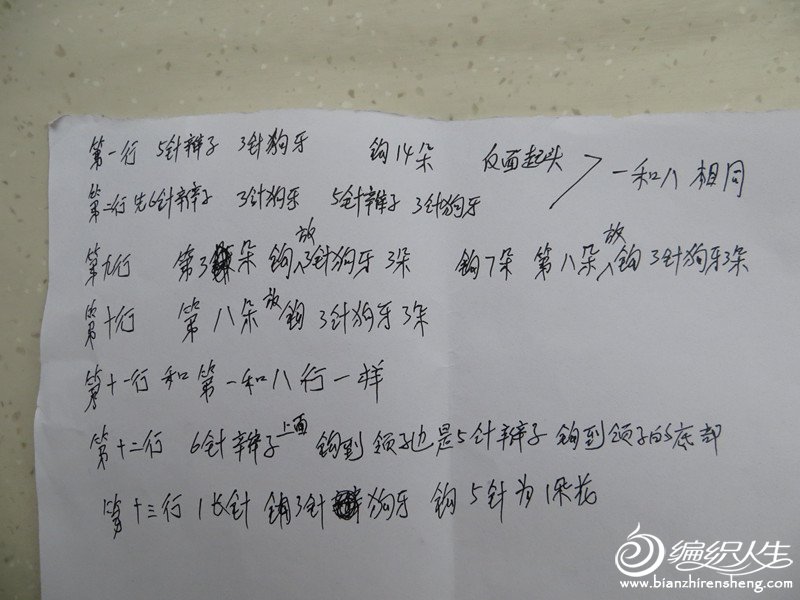 第一行 5针辫子 3针狗牙 钩14朵 反面起头 一和八相同
第二行先6针辫子 3针狗牙 5针辫子 3针狗牙
第九行 第3朵 钩放3针狗牙3朵 钩7朵 第八朵放钩3针狗牙3朵
第十行 第八朵放钩 3针狗牙3朵
第十一行和第一和八行一样
第十二行 6针辫子上面 钩到领子也是5针辫子 钩到领子的底部
第十三行 1长针 铺3针狗牙 钩5针为1朵花
编织人生
www.bianzhirensheng.com